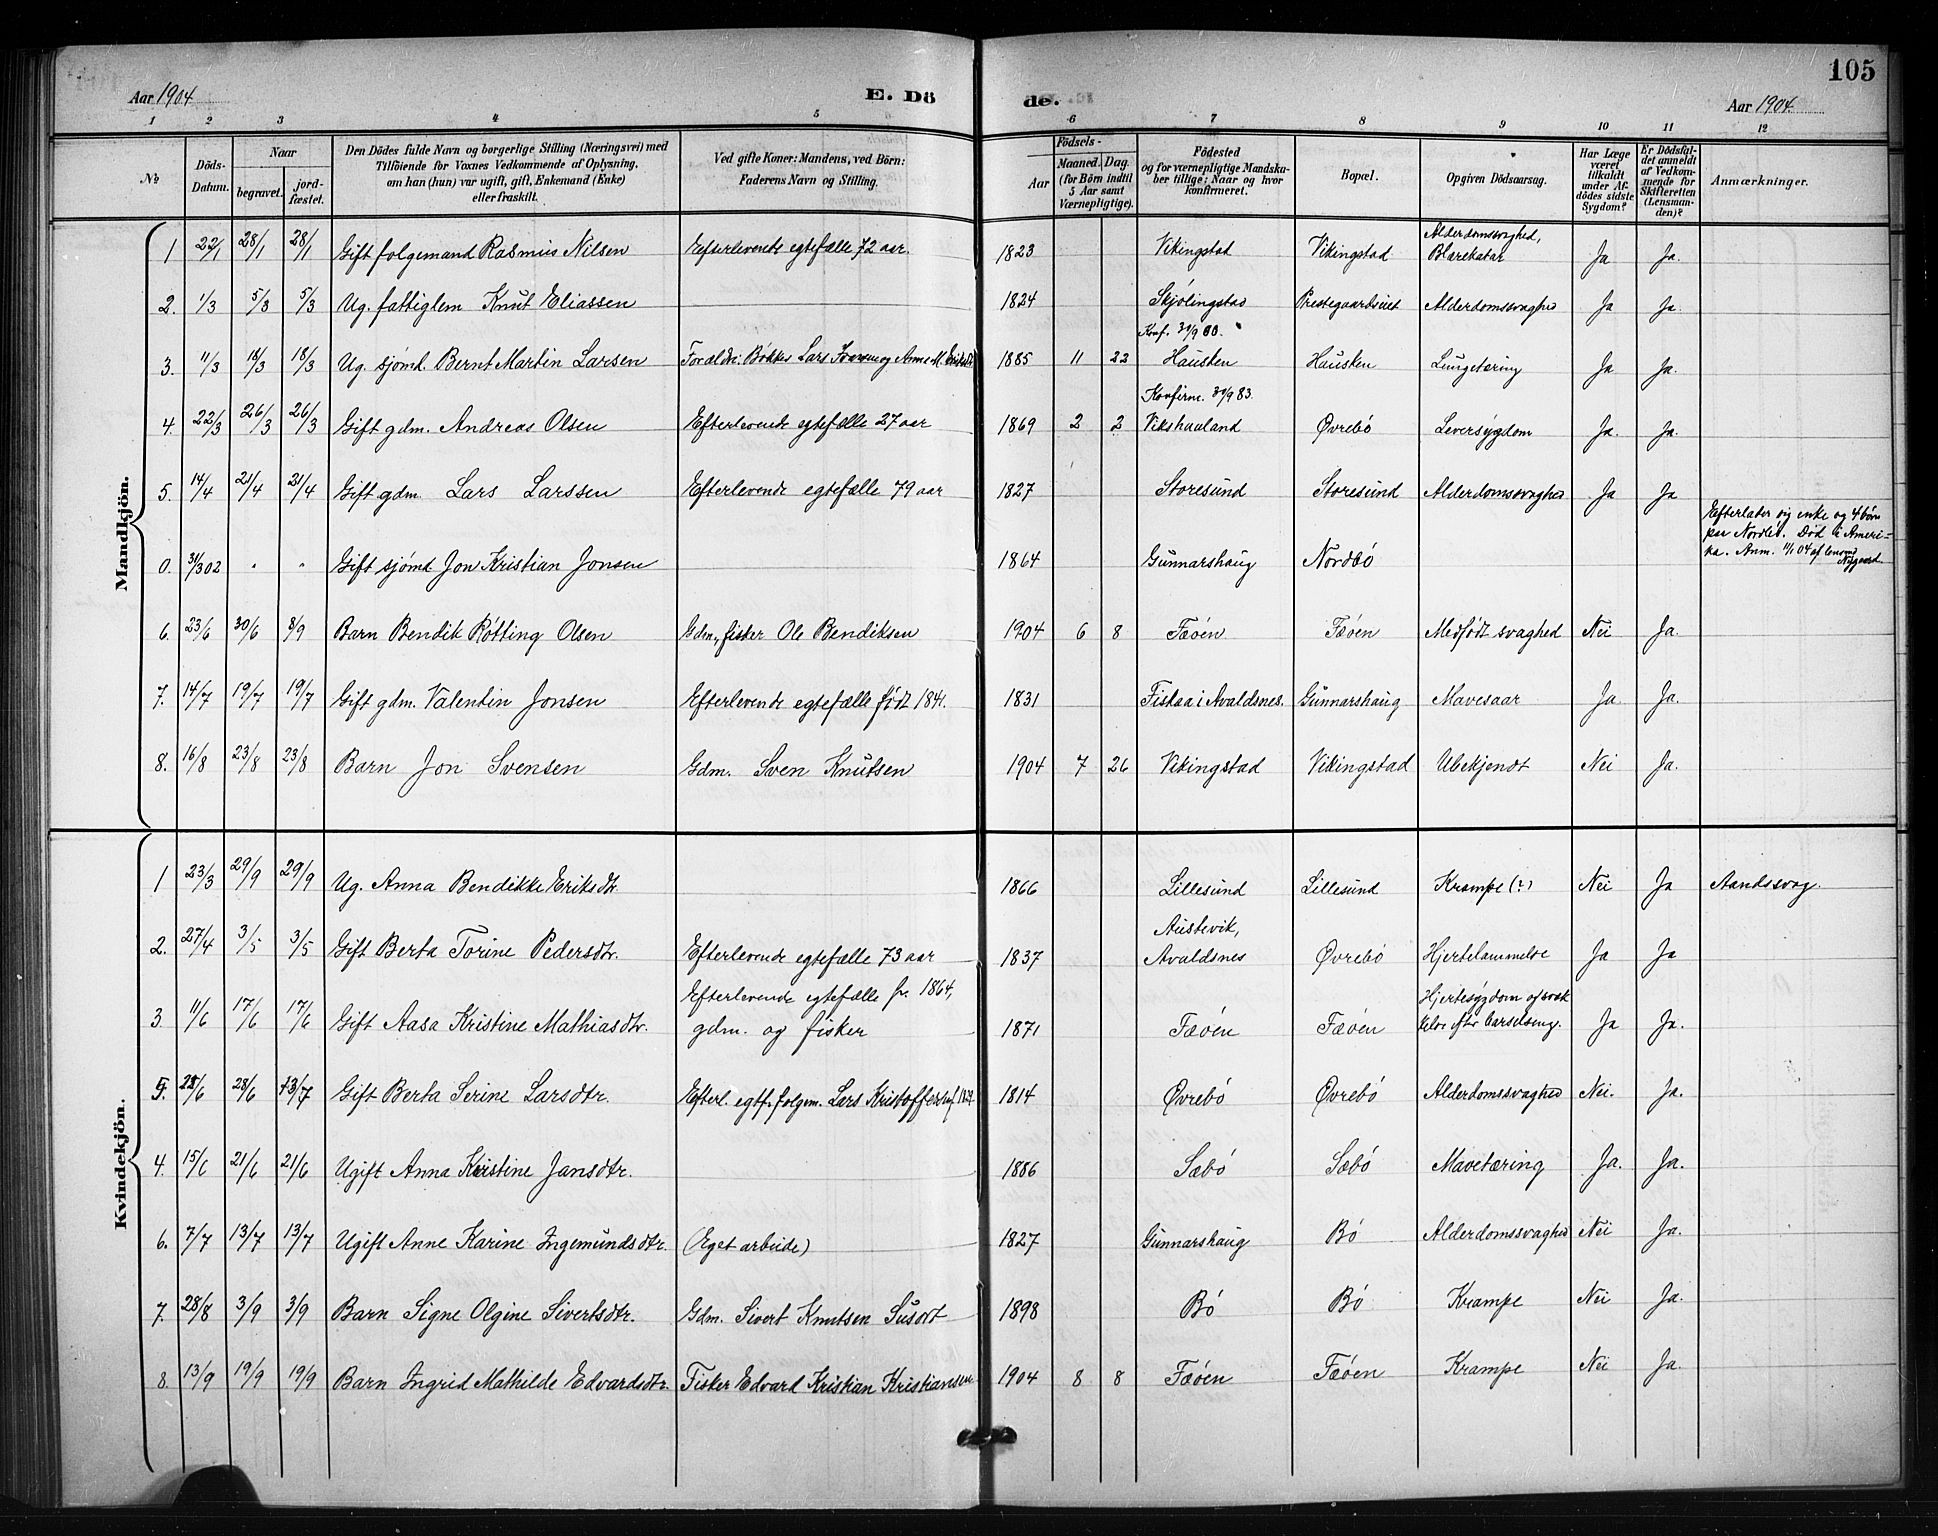 105
Aar 1904
E. Dö
de.
Aar 1904
1 2 3 4 5 6 7 8 9 10 11 12
№
Döds-Datum.
Naar
begravet.
jord-fæstet.
Den Dödes fulde Navn og borgerlige Stilling (Næringsvei) med
Tilföiende for Voxnes Vedkommende af Oplysning,
om han (hun) var ugift, gift, Enkemand (Enke)
eller fraskilt.
Ved gifte Koner: Mandens, ved Börn:
Faderens Navn og Stilling.
Födsels-
Aar
Maaned. Dag.
(for Börn indtil
5 Aar samt
Værnepligtige).
Födested
og for værnepligtige Mandska-
ber tillige; Naar og hvor
konfirmeret.
Bopæl.
Opgiven Dödsaarsag.
Har Læge
været
tilkaldt
under Af-
dödes sidste
Sygdom?
Er Dödsfal-
det anmeldt
af Vedkom-
mende for
Skifteretten
(Lensman-
den)?
Anmærkninger.
Mandkjön.
1 22/1 28/1 28/1 Gift folgemand Rasmus Nilsen Efterlevende egtefælle 72 aar. 1823 Vikingstad Vikingstad Alderdomssvaghed, Blærekatar Ja Ja.
2. 1/3 5/3 5/3 Ug. fattiglem Knut Eliassen 1824 Skjölingstad Prestegaardseiet Alderdomssvaghed Ja Ja.
3. 11/3 18/3 18/3 Ug. sjömd. Bernt Martin Larsen Foraldr: Bökker Lars og Anne M. 1885 11 22 Konf. Hausken Hausken Lungetæring Ja Ja.
4. 22/3 26/3 26/3 Gift gdm. Andreas Olsen Efterlevende egtefælle 27 aar 1869 2 2 Konfirm. 30/9 83. Vikshaaland Øvrebö Leversygdom Ja. Ja.
5. 14/4 21/4 21/4 Gift gdm. Lars Larssen Efterlevende egtefælle 79 aar 1827 Storesund Storesund Alderdomssvaghed Ja Ja
0. 31/3 02 " " Gift sjömd Jon Kristian Jonsen 1864 Gunnarshaug Nordbö Efterlater sig enke og 4 börn
paa Nordbö. Död i Ameri-
ka. Anm. 11/1 04 af lensmd
Nygaard.
6. 23/6 30/6 8/9 Barn Bendik Rötting Olsen Gdm., fisker Ole Bendiksen 1904 6 8 Fæöen Fæöen Medfödt svaghed Nei Ja.
7. 14/7 19/7 19/7 Gift gdm. Valentin Jonsen Efterlevende egtefælle födt 1841. 1831 Fiskaa i Avaldsnes. Gunnarshaug Mavesaar Ja. Ja.
8. 16/8 23/8 23/8 Barn Jon Svensen Gdm. Sven Knutsen 1904 7 26 Vikingstad Vikingstad Ubekjendt Nei Ja.
Kvindekjön.
1 23/3 29/9 29/9 Ug. Anna Bendikke Eriksdtr. 1866 Lillesund Lillesund Krampe (?) Nei Ja Aandssvag.
2. 27/4 3/5 3/5 Gift Berta Torine Pedersdtr. Efterlevende egtefælle 73 aar 1837 Austevik, Avaldsnes Øvrebö Hjertelammelse Ja Ja
3 11/6 17/6 17/6 Gift Aasa Kristine Mathiasdtr. Efterlevende egtefælle f. 1864, gdm. og fisker 1871 Fæöen Fæöen Hjertesygdom efter barselseng. Ja Ja.
5. 28/6 13/7 Gift Berta Serine Larsdtr. Efterl. egtf. folgm. Lars Kristoffersen f. 1814 Øvrebö Øvrebö Alderdomssvaghed Nei. Ja.
4. 15/6 21/6 21/6 Ugift Anna Kristine Jansdtr. 1886 Sæbö Sæbö Mavetæring Ja. Ja.
6. 7/7 13/7 13/7 Ugift Anne Karine Ingemundsdtr. (Eget arbeide) 1827 Gunnarshaug Bö Alderdomssvaghed Nei Ja.
7. 28/8 3/9 3/9 Barn Signe Olgine Sivertsdtr. Gdm. Sivert Knutsen Susort 1898 Bö Bö Krampe Nei Ja.
8. 13/9 19/9 19/9 Barn Ingrid Mathilde Edvardsdtr. Fisker Edvard Kristian Kristiansen 1904 8 8 Fæöen Fæöen Krampe Nei Ja.